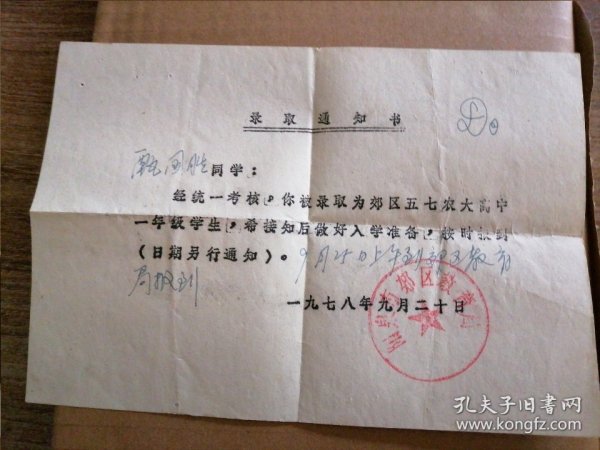 录取通知书
同学：
经统一考核，你被录取为郊区五七农大高中
一年级学生，希接知后做好入学准备，按时报到
（日期另行通知）。9月25日上午到郊区教育
局报到
一九七八年九月二十日
郊区教育局
孔夫子旧书网
www.kongfz.com